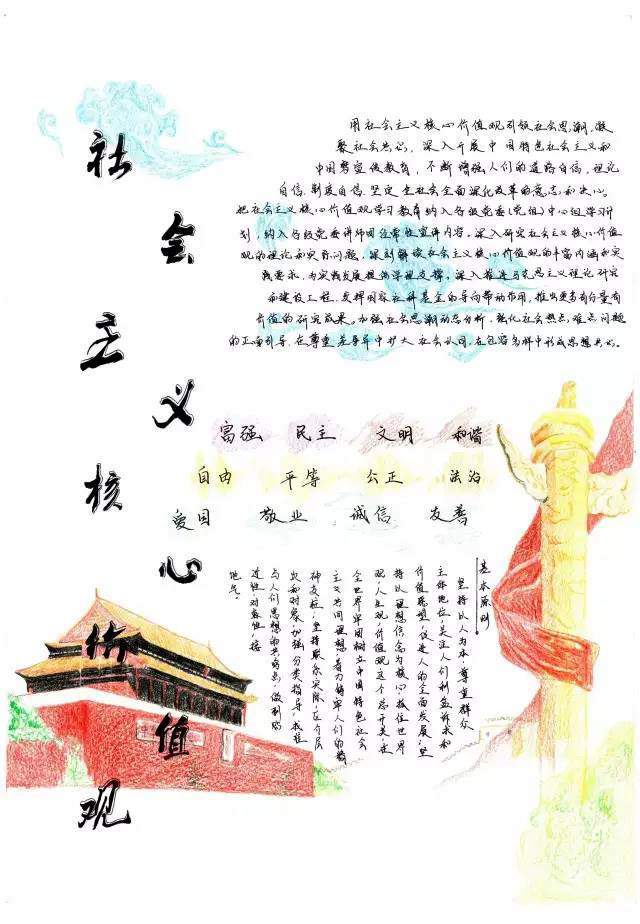 社会主义核心价值观
用社会主义核心价值观引领社会思潮、凝
聚社会共识。深入开展中国特色社会主义和
中国梦宣传教育，不断增强人们的道路自信、理论
自信、制度自信，坚定全社会全面深化改革的意志和决心。
把社会主义核心价值观学习教育纳入各级党委(党组)中心组学习计
划，纳入各级党委讲师团经常性宣讲内容。深入研究社会主义核心价值
观的理论和实际问题，深刻解读社会主义核心价值观的丰富内涵和实
践要求，为实践发展提供学理支撑。深入推进马克思主义理论研究
和建设工程，发挥国家社科基金的导向带动作用，推出更多有分量有
价值的研究成果。加强社会思潮动态分析，强化社会热点、难点问题
的正面引导，在尊重差异中扩大社会认同，在包容多样中形成思想共识。
富强 民主 文明 和谐
自由 平等 公正 法治
爱国 敬业 诚信 友善
基本原则
坚持以人为本，尊重群众
主体地位，关注人们利益诉求和
价值愿望，促进人的全面发展；坚
持以理想信念为核心，抓住世界
观、人生观、价值观这个总开关，在
全世界牢固树立中国特色社会
主义共同理想，着力铸牢人们的精
神支柱；坚持联系实际，区分层
次和对象，加强分类指导，找准
与人们思想的共鸣点，做到贴
近性、对象性、接
地气。